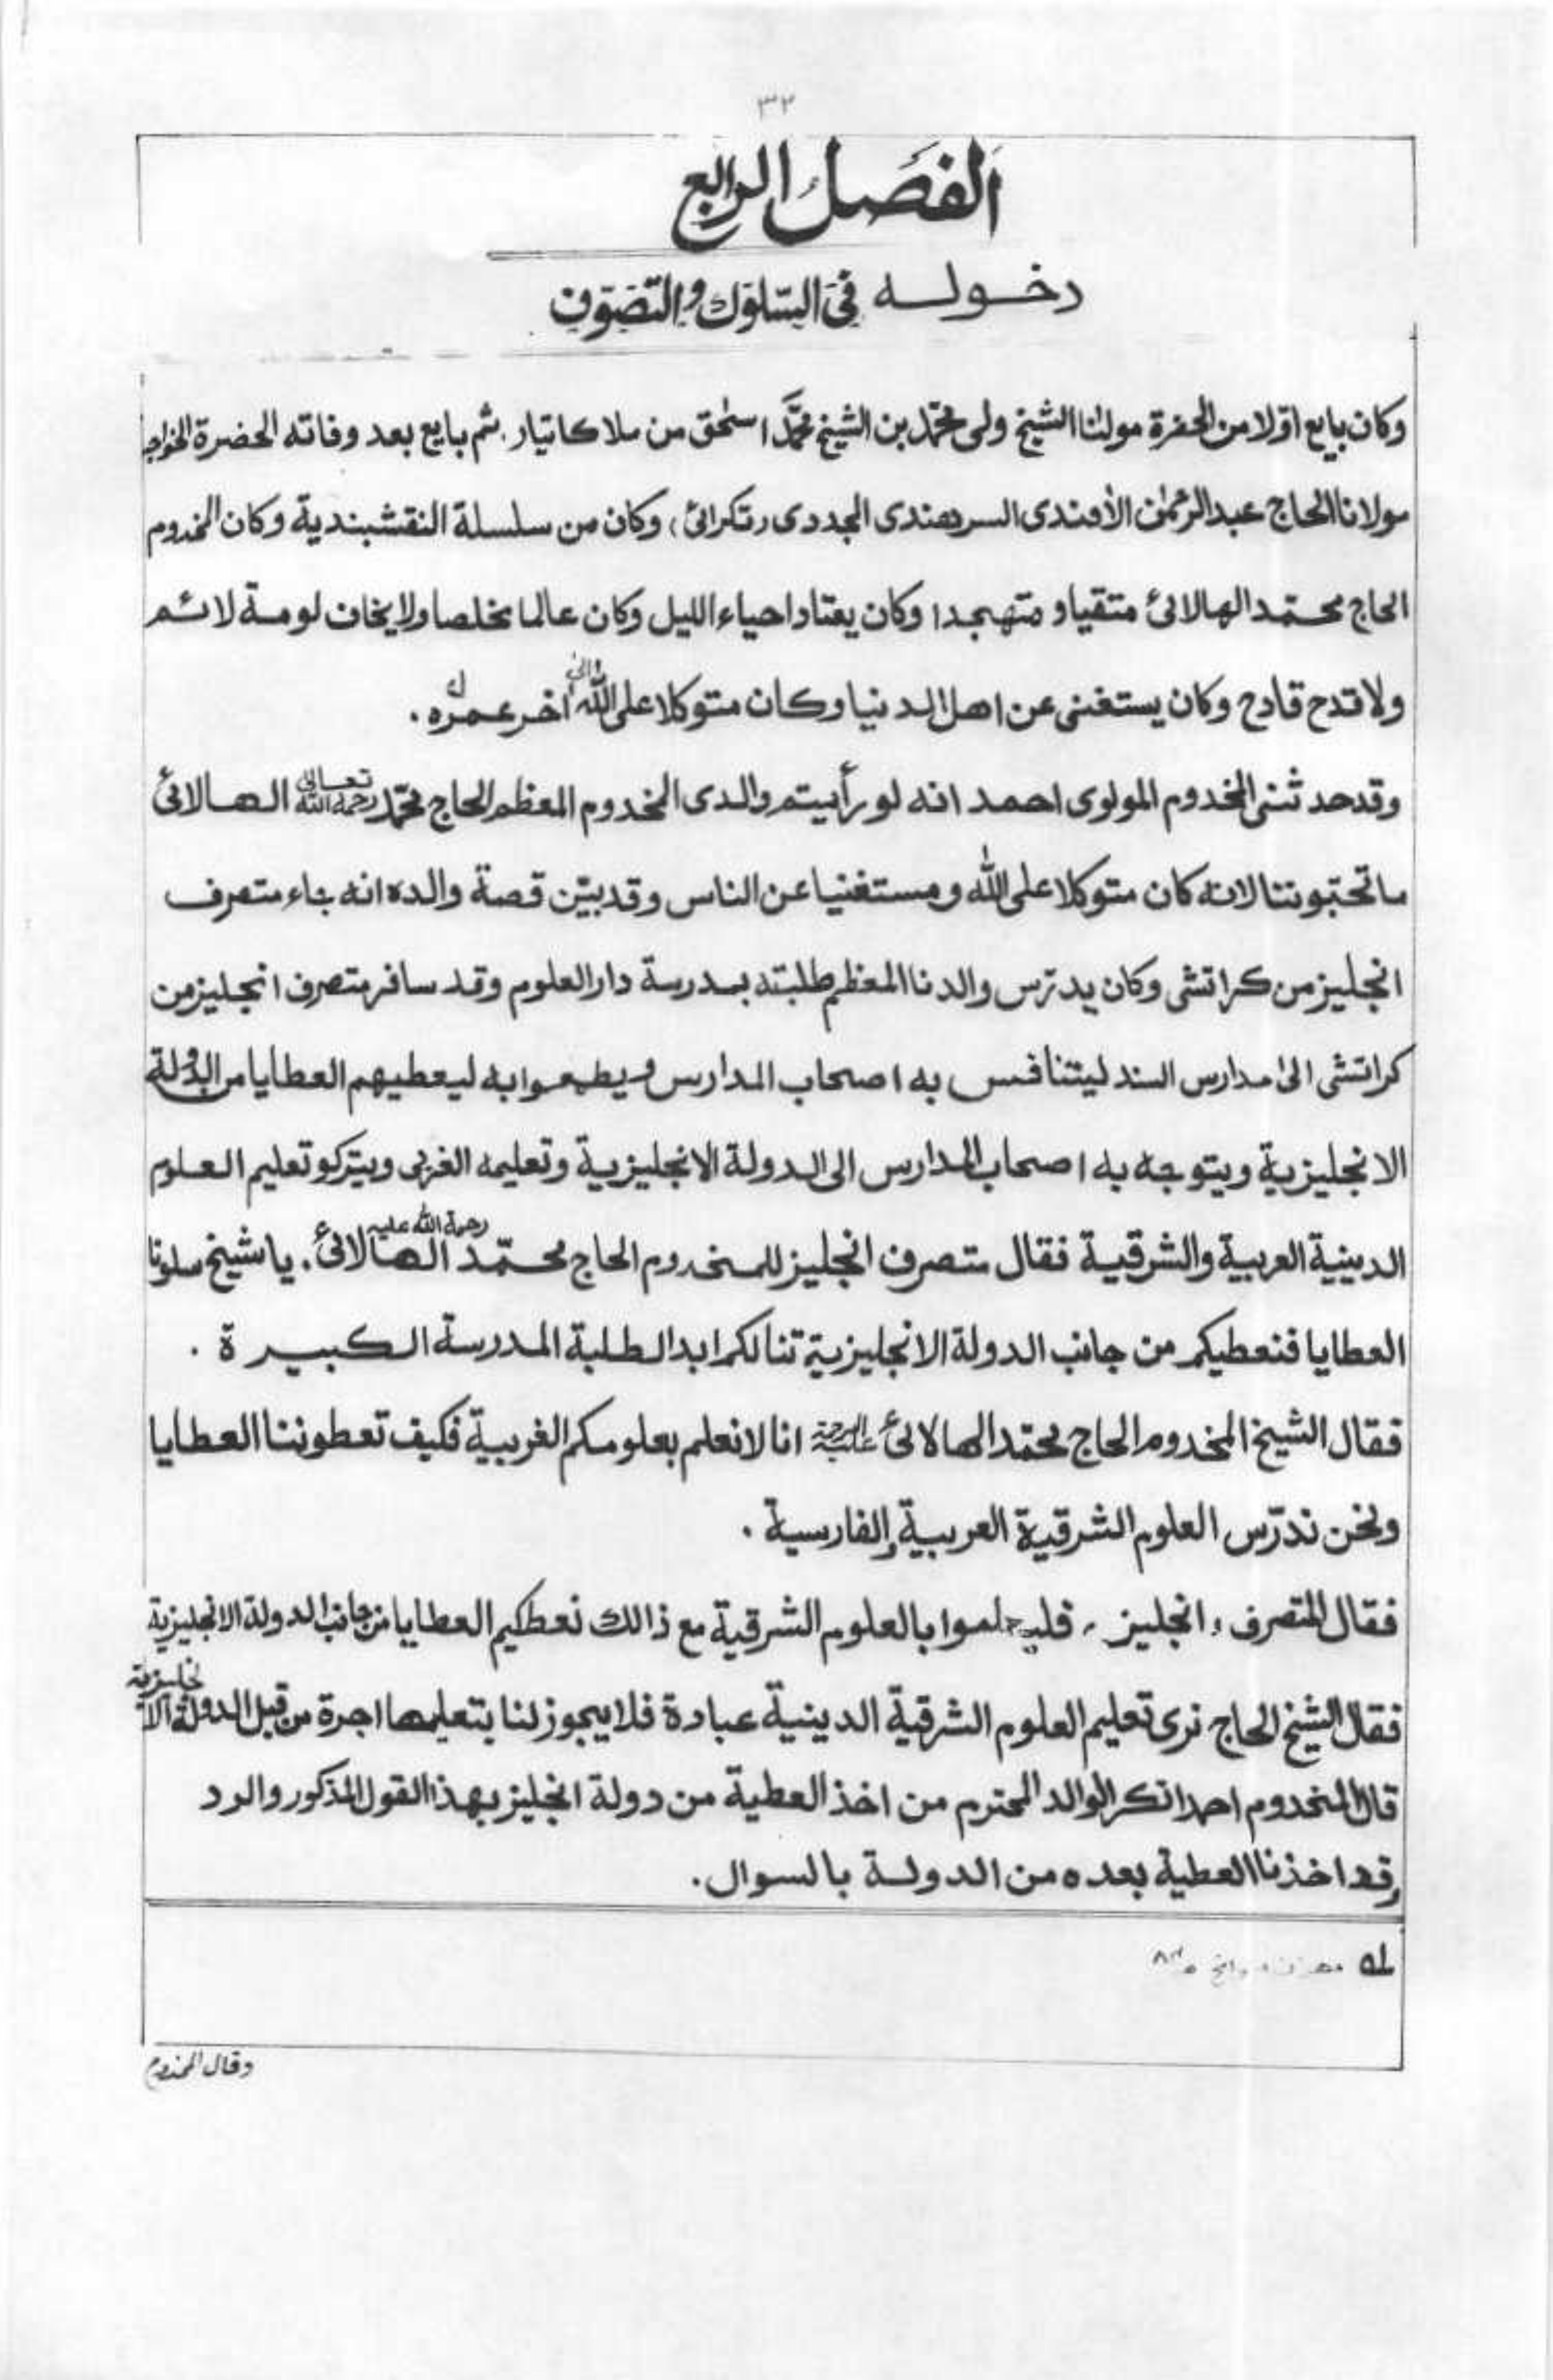 ٣٢
الفَصَلُ الرابع
دخوله فی السّلوك والتّصوّف
وكان بايع اوّلا من الحضرة مولٰنا الشيخ ولی محمّد بن الشيخ محمَّد اسحٰق من ملا كاتيار. ثم بايع بعد وفاته الحضرة الخواجه
مولانا الحاج عبدالرحمٰن الأفندی السرهندی المجددی (تكرائی) وكان من سلسلة النقشبندية وكان المخدوم
الحاج محمّد الهالائی متقيا و متهجدا وكان يعتاد احياء الليل وكان عالما مخلصا ولا يخاف لومة لائم
ولا قدح قادح وكان يستغنی عن اهل الدنيا وكان متوكلا علی الله والیٰ اٰخر عمره ؎۱.
وقد حدثنی المخدوم المولوی احمد انه لو رأيتم والدی المخدوم المعظم الحاج محمّد رحمه الله تعالیٰ الهالائی
ما تحبّوننا لانه كان متوكلا علی الله ومستغنيا عن الناس وقد بيّن قصة والده انه جاء متصرف
انجليز من كراتشی وكان يدرّس والدنا المعظم طلبته بمدرسة دارالعلوم وقد سافر متصرف انجليز من
كراتشی الیٰ مدارس السند ليتنافس به اصحاب المدارس ويطمعوا به ليعطيهم العطايا من الدولة
الانجليزية ويتوجه به اصحاب المدارس الی الدولة الانجليزية وتعليمه الغربی ويتركو تعليم العلوم
الدينية العربية والشرقية فقال متصرف انجليز للمخدوم الحاج محمّد الهالائی رحمة الله عليه. يا شيخ سلونا
العطايا فنعطيكم من جانب الدولة الانجليزية تنالكم ابدا لطلبة المدرسة الكبيرة.
فقال الشيخ المخدوم الحاج محمّد الهالائی عليه الرحمة انا لا نعلم بعلومكم الغربية فكيف تعطوننا العطايا
ونحن ندرّس العلوم الشرقية العربية والفارسية.
فقال المتصرف "انجليز" بالعلوم الشرقية مع ذالك نعطكيم العطايا من جانب الدولة الانجليزية
فقال الشيخ الحاج نری تعليم العلوم الشرقية الدينية عبادة فلا يجوز لنا بتعليمها اجرة من قبل الدولة الانجليزية
قال المخدوم احمد انكر الوالد المحترم من اخذ العطية من دولة انجليز بهذا القول المذكور والرد
وقد اخذنا العطية بعده من الدولة بالسوال.
؎۱
وقال المخدوم